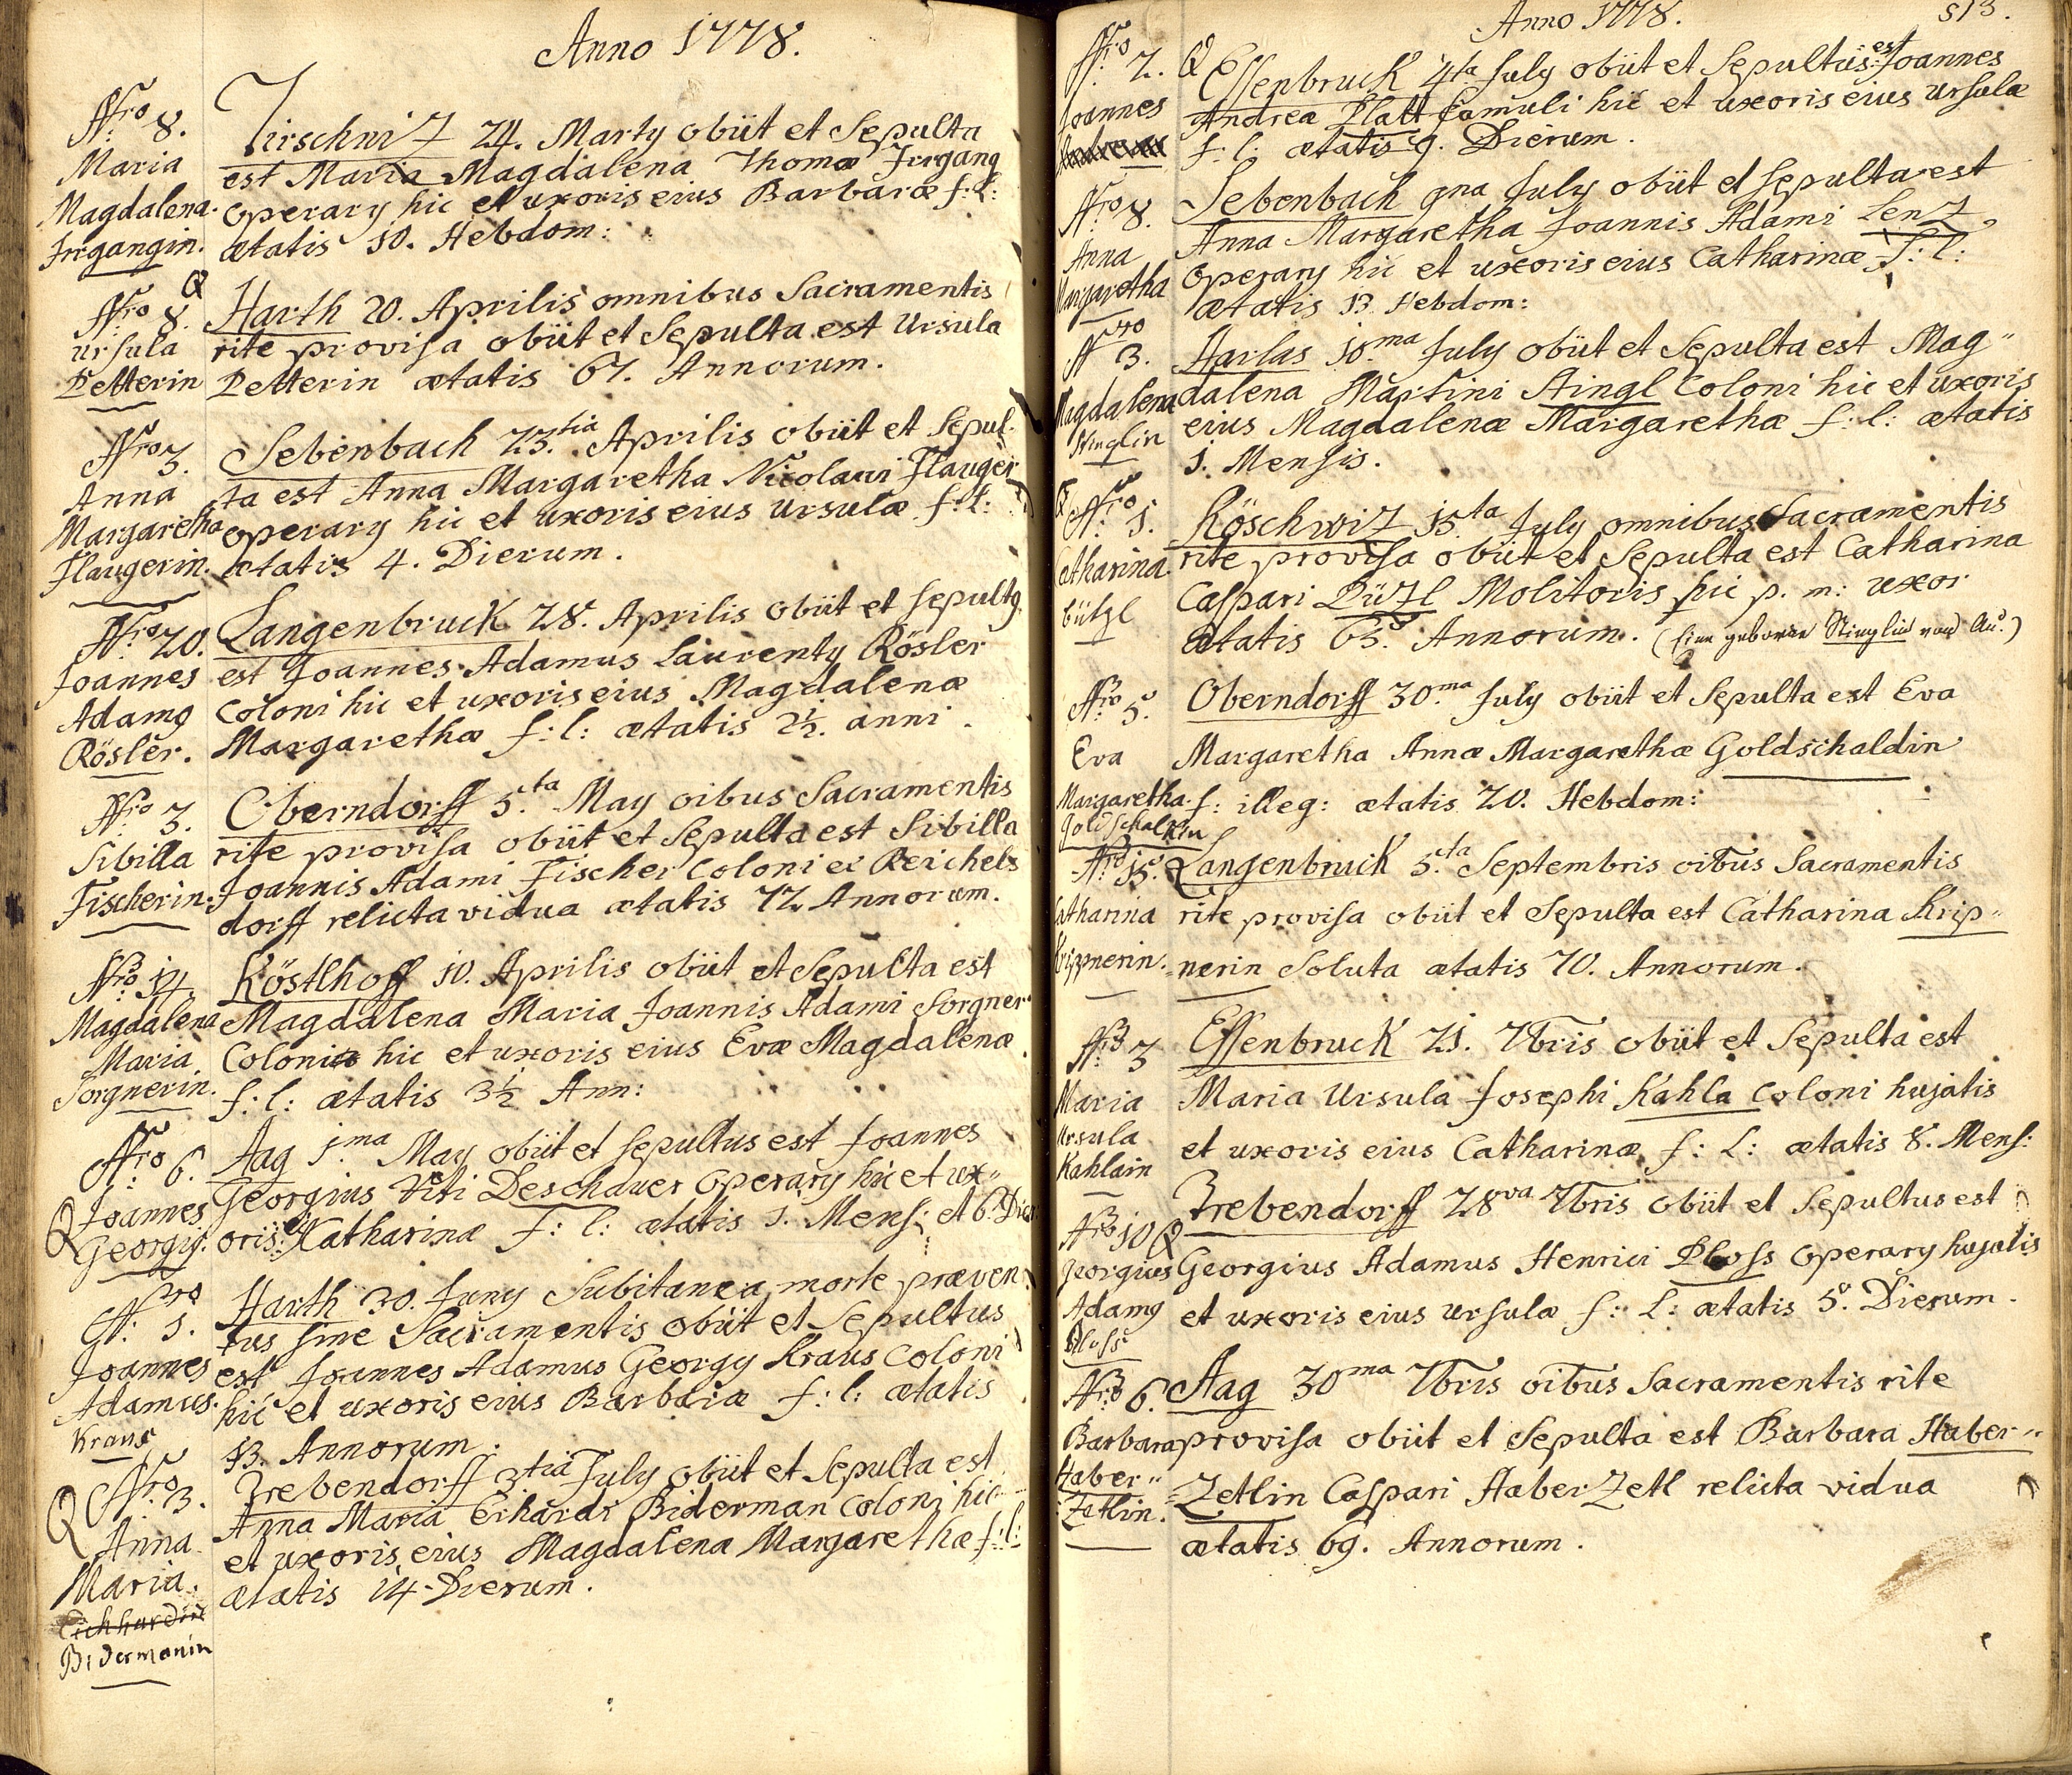 Anno 1778.
Nro 8.
Maria
Magdalena.
Irrgangin.
Tirschniz 24. Marty obiit et Sepulta
est Maria Magdalena Thomæ Irrgang
operary hic et uxoris eius Barbaræ f: l:
ætatis 10. Hebdom:
Nro 8.
Ursula
Petterin
Harth 20. Aprilis omnibus Sacramentis
rite provisa obiit et Sepulta est Ursula
Petterin ætatis 67. Annorum.
Nro 3.
Anna
Margaretha
Flaugerin.
Sebenbach 23.tia Aprilis obiit et Sepul-
ta est Anna Margaretha Nicolaui Flauger
operary hic et uxoris eius Ursulæ f: l:
ætatis 4. Dierum.
Nro 20.
Joannes
Adamg
Rösler.
Langenbruck 28. Aprilis obiit et sepultg
est Joannes Adamus Laurenty Rösler
Coloni hic et uxoris eius Magdalenæ
Margarethæ f: l: ætatis 2½. anni.
Nro 3.
Sibilla
Fischerin.
Oberndorff 5.ta May oibus Sacramentis
rite provisa obiit et Sepulta est Sibilla
Joannis Adami Fischer Coloni ex Reichels
dorff relicta vidua ætatis 72 Annorum.
Nro 14
Magdalena
Maria
Sorgnerin.
Köstlhoff 10. Aprilis obiit et Sepulta est
Magdalena Maria Joannis Adami Sorgner
Coloni hic et uxoris eius Evæ Magdalenæ
f: l: ætatis 3½ Ann:
Nro 6.
Joannes
Georgig.
Aag 1.ma May obiit et sepultus est Joannes
Georgius Viti Deschauer operary hic et ux"
oris: Katharinæ f: l: ætatis 1. Mens: et 6. Dier
Nro 1.
Joannes
Adamus.
Kraus
Harth 30. Juny Subitanea morte præven
tus sine Sacramentis obiit et Sepultus
est Joannes Adamus Georgy Kraus Coloni
hic et uxoris eius Barbaræ f: l: ætatis
13. Annorum.
Nro 3.
Anna
Maria.
Eichhardin
Bidermanin
Trebendorff 3.tia July obiit et Sepulta est
Anna Maria Erhardi Biderman Coloni hic
et uxoris eius Magdalena Margarethæ f: l:
ætatis 14. Dierum.
Anno 1778.
513.
Nro 2.
Joannes
Essenbruck 4ta July obiit et Sepultus est Joannes
Andrea Platt famuli hic et uxoris eius Ursulæ
f: l: ætatis 9. Dierum.
Nro 8.
Anna
Margaretha
Sebenbach 9na July obiit et sepulta est
Anna Margaretha Joannis Adami Lenz
operary hic et uxoris eius Catharinæ f: l:
ætatis 13. Hebdom:
Nro 3.
Magdalena
Stinglin
Harlas 10.ma July obiit et Sepulta est Mag"
dalena Martini Stingl Coloni hic et uxoris
eius Magdalenæ Margarethæ f: l: ætatis
1. Mensis.
Nro 1.
Catharina
bützl
Röschwiz 15ta July omnibus Sacramentis
rite provisa obiit et Sepulta est Catharina
Caspari Düzl Molitoris hic p. m: uxor
ætatis 63. Annorum. (Eine geborne Stinglin von Au.)
Nro 5.
Eva
Margaretha.
Goldschaldin
Oberndorff 30.ma July obiit et Sepulta est Eva
Margaretha Annæ Margarethæ Goldschaldin
f: illeg: ætatis 20. Hebdom:
Nro 15.
Catharina
Krippnerin.
Langenbruck 5.ta Septembris oibus Sacramentis
rite provisa obiit et Sepulta est Catharina Krip"
nerin Soluta ætatis 70. Annorum.
Nro 3
Maria
Ursula
Kahlain
Essenbruck 21. 7bris obiit et Sepulta est
Maria Ursula Josephi Kahla Coloni hujatis
et uxoris eius Catharinæ f: l: ætatis 8. Mens:
Nro 10
Georgius
Adamg
Ploss
Trebendorff 28va 7bris obiit et Sepultus est
Georgius Adamus Henrici Ploss operary hujatis
et uxoris eius Ursulæ f: l: ætatis 5. Dierum.
Nro 6.
Barbara
Haber"
Zetlin.
Aag 30ma 7bris oibus Sacramentis rite
provisa obiit et Sepulta est Barbara Haber"
Zetlin Caspari HaberZetl relicta vidua
ætatis 69. Annorum.